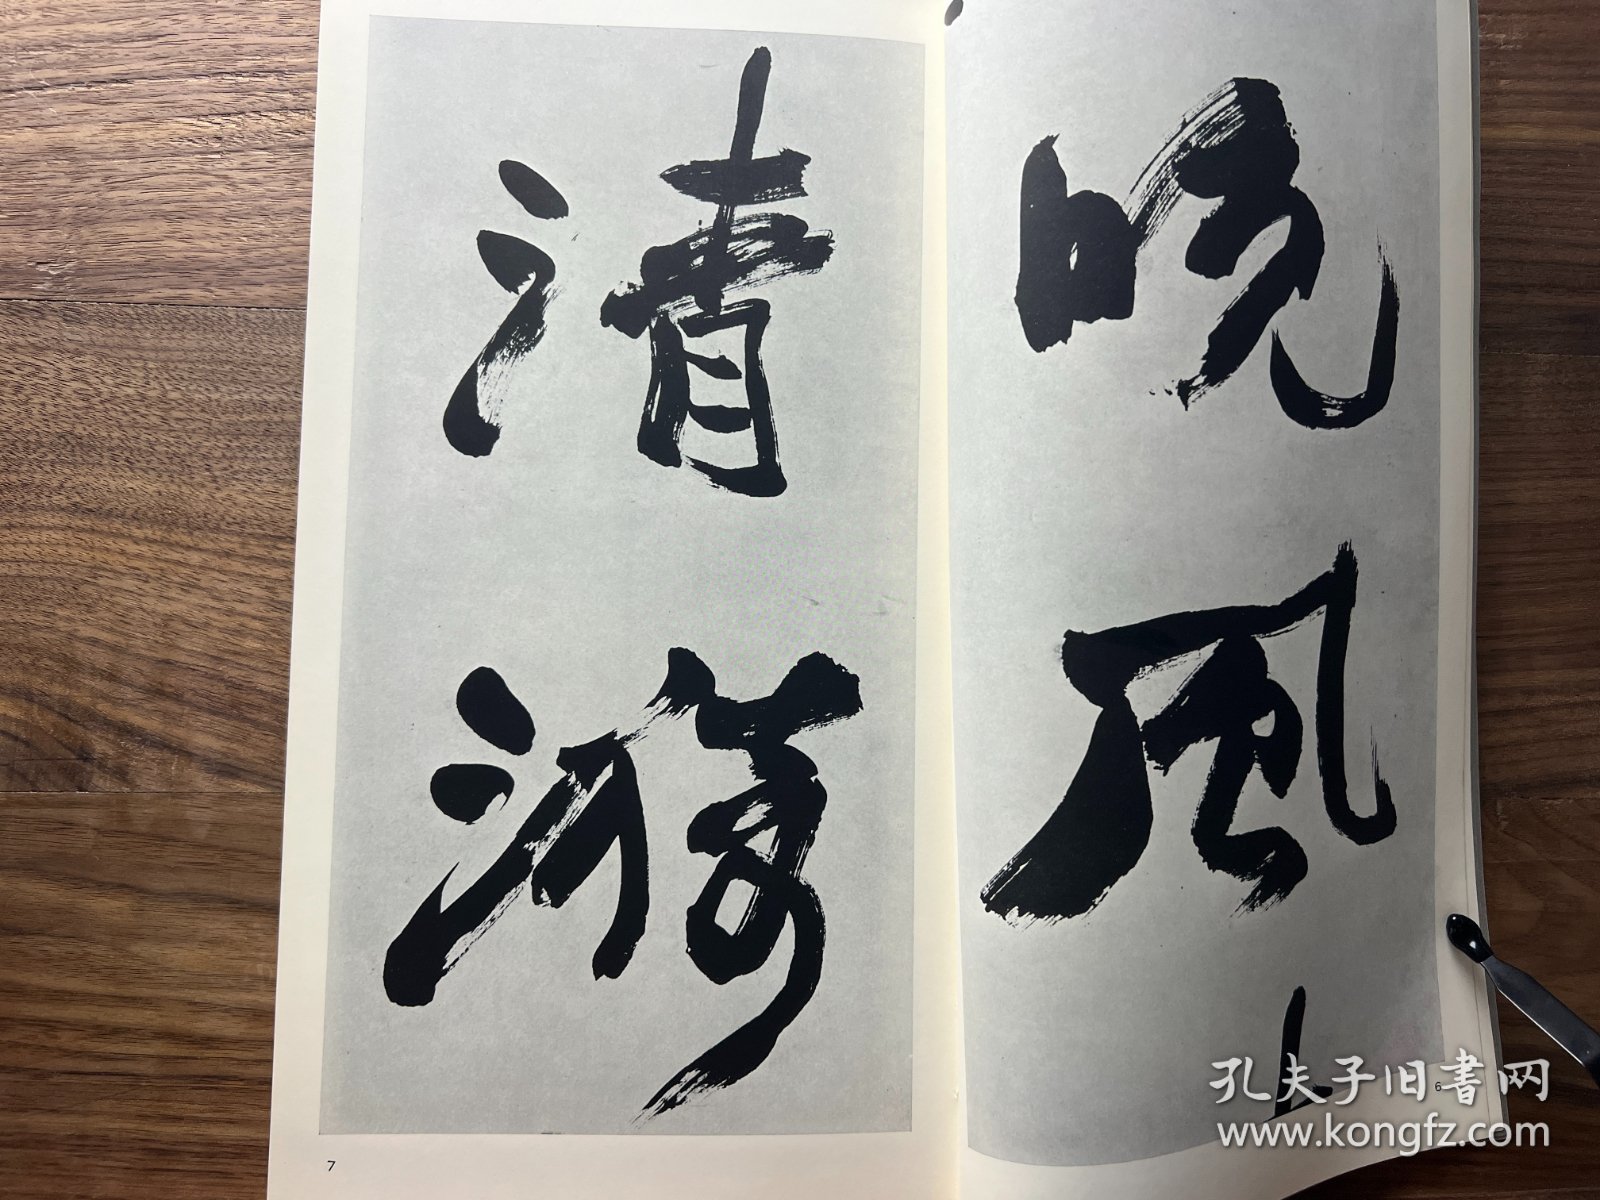 晚風
清漪
6
7
孔夫子旧書网
www.kongfz.com